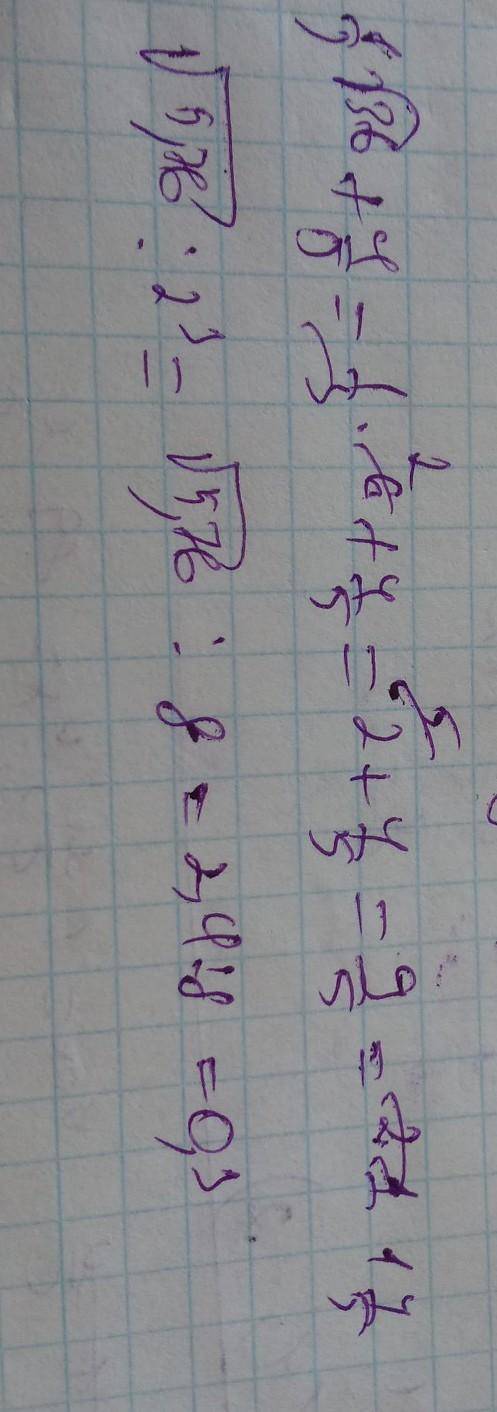 1/3 √36 + 4/5 = 1/3 · 6 2 + 4/5 = 2 5 + 4/5 = 9/5 = 1 4/5
√5,76 : 2³ = √5,76 : 8 = 2,4:8 = 0,3